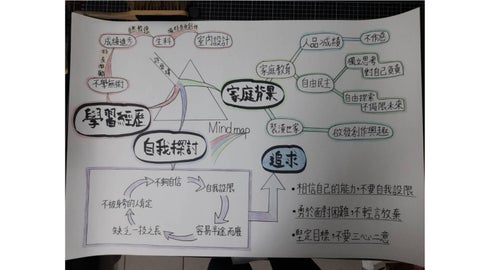 成績進步
生科
室內設計
不學無術
學習經歷
家庭背景
家庭教育
人品>成績
不作惡
自由民主
獨立思考
對自己負責
自由探索
不侷限未來
裝潢世家
啟發創作興趣
Mind map
自我探討
追求
不夠自信
自我設限
容易半途而廢
缺乏一技之長
不被身旁的人肯定
•相信自己的能力,不要自我設限
•勇於面對困難,不輕言放棄
•堅定目標,不要三心二意